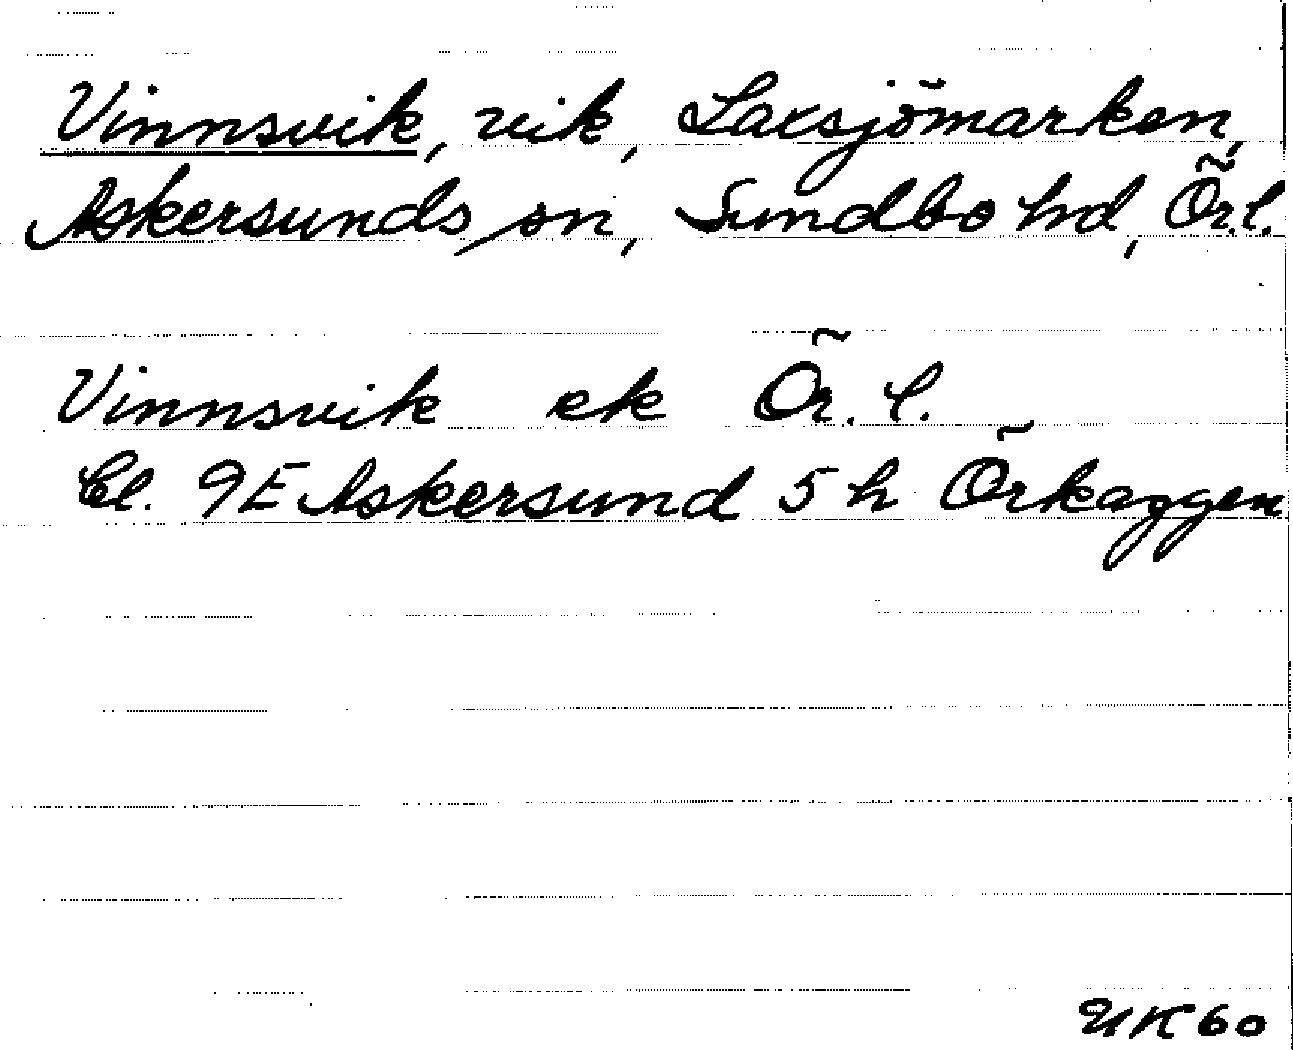 Vinnsvik, vik, Laxsjömarken,
Askersunds sn, Sundbo hd, Ör.l.
Vinnsvik ek Ör. l.
Bl. 9E Askersund 5 h Örkaggen
UK 60